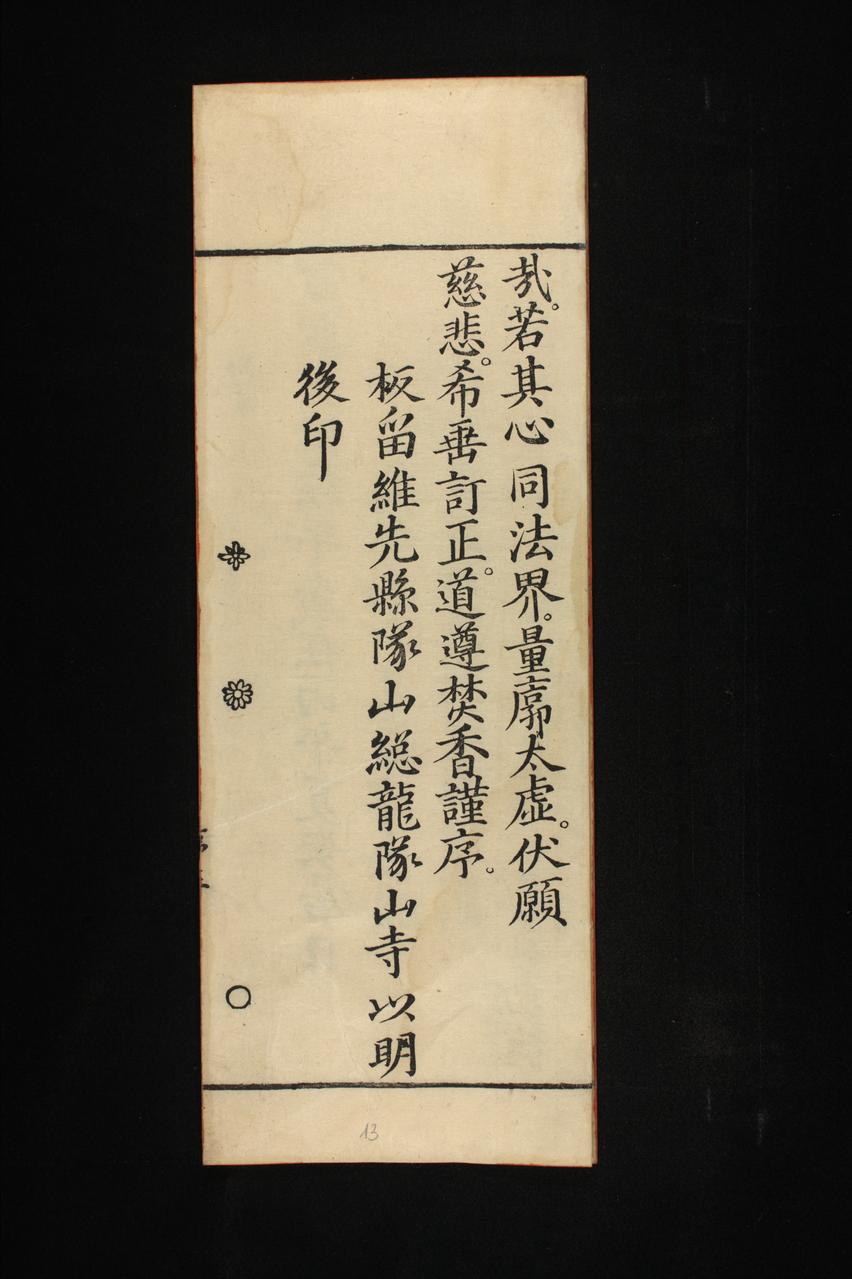 哉。若其心同法界。量廓太虛。伏願
慈悲。希垂訂正。道遵焚香謹序。
板留維先縣隊山總龍隊山寺以明
後印
13